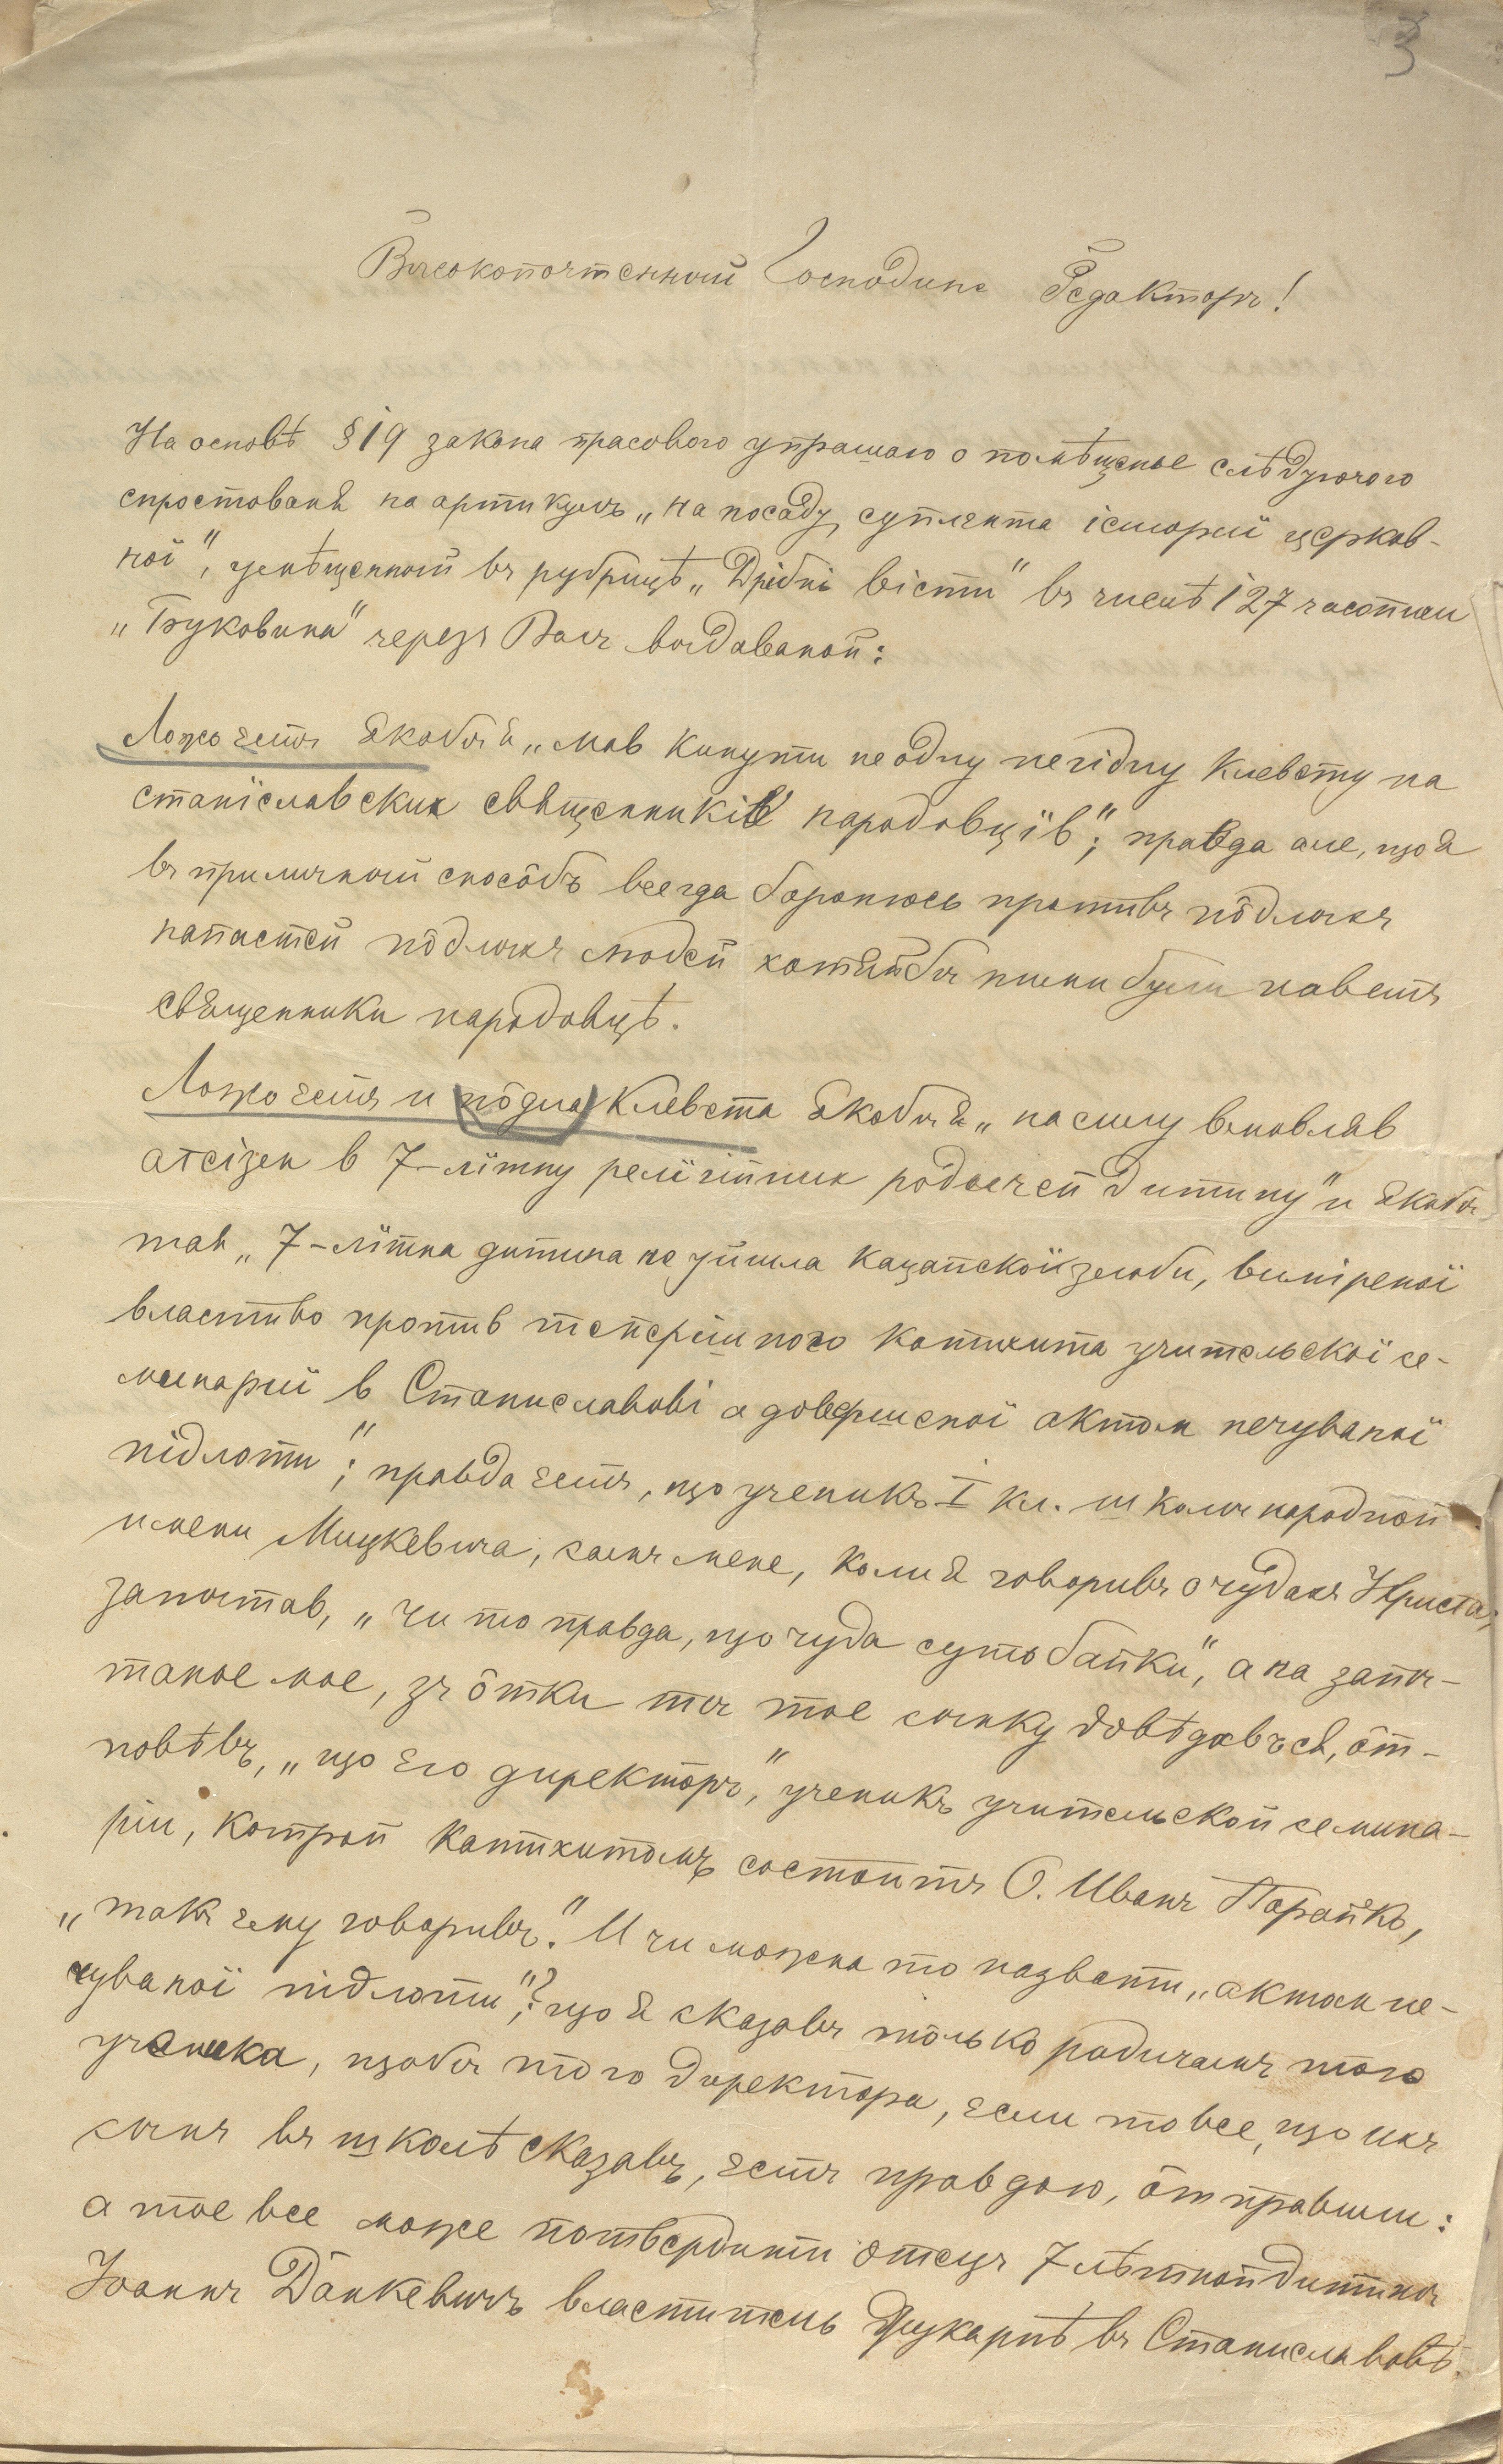 3
Высокопочтенный Господине Редакторъ!
На основѣ §19 закона прасового упрашаю о помѣщенье слѣдуючого
спростованя на артикулъ „На посаду суплента історії церков-
ної", умѣщенный въ рубрицѣ „Дрібні вісти" въ числѣ 127 часописи
„Буковина" черезъ Вамъ выдаваной:
Ложь есть якобы я „мав кинути не одну негідну клевету на
станїславских священників народовцїв"; правда але, що я
въ приличный способъ всегда боронюсь противъ пôдлыхъ
напастей пôдлыхъ людей хотяйбы ними были наветъ
священники народовцѣ.
Ложь есть и пôдла клевета якобы я „на силу вмовляв
атеізм в 7-лїтну релїгійних родичей дитину" и якобы
там „7-лїтна дитина не уйшла кацапскої злоби, виміреної
властиво против теперішного катихита учительскої се-
минариї в Станиславові а довершеної актом нечуваної
підлоти"; правда есть, що ученикъ I кл. школы народной
имени Мицкевича, самъ мене, коли я говоривъ о чудахъ Христа,
запытав, „чи то правда, що чуда суть байки", а на запы-
танье мое, зъ ôтки ты тое сынку довѣдавъся, ôт-
повѣвъ, „що его директоръ," ученикъ учительской семина-
ріи, котрой катихитомъ состоитъ О. Иванъ Порайко,
„такъ ему говоривъ." И чи можна то назвати „актом не-
чуваної підлоти"?, що я сказавъ тôлько родичамъ того
ученика, щобы того директора, если то все, що ихъ
сынъ въ школѣ сказавъ, есть правдою, ôтправили:
а тое все може потвердити отецъ 7 лѣтной дитины
Іоаннъ Данкевичъ властитель друкарнѣ въ Станиславовѣ.